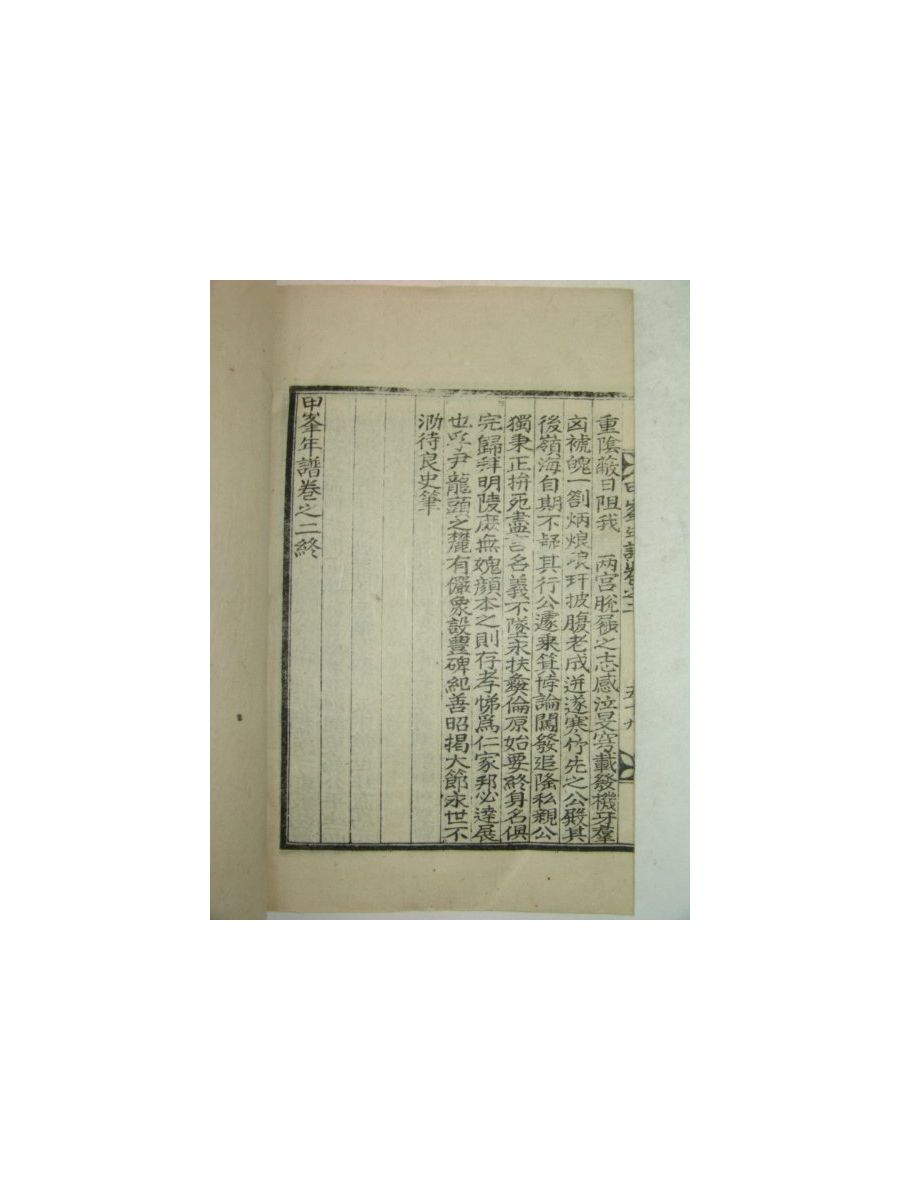 重陰蔽日阻我 兩宮脫屣之志感泣旻穹載發機牙羣
凶褫魄一劄炳烺琅玕披腹老成迸逐寒竹先之公殿其
後嶺海自期不疑其行公遽乘箕悖論闖發追隆私親公
獨秉正拚死盡言名義不墜永扶彝倫原始要終身名俱
完歸拜明陵庶無媿顔本之則存孝悌爲仁家邦必達展
也 尹龍頭之麓有儼象設豐碑紀善昭揭大節永世不
泐待良史筆
甲峯年譜卷之二終
甲峯年譜卷之二 五十九